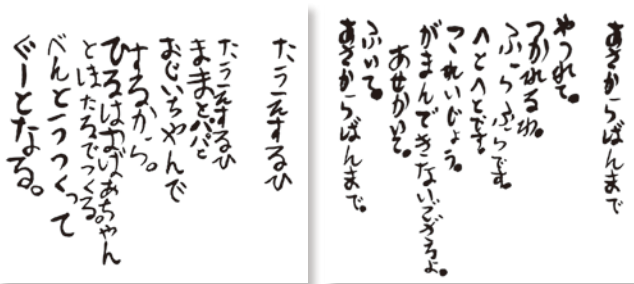 あさからばんまで
やつれて。
つかれるね。
ふらふらです。
へとへとです。
これいじょう。
がまんできない
あせかいて。
ふいて。
あさからばんまで。
たうえするひ
たうえするひ
ままとパパと
おじいちゃんで
するから。
ひるはおばあちゃん
とほたろでつくる。
べんとうつくって
ぐーとなる。